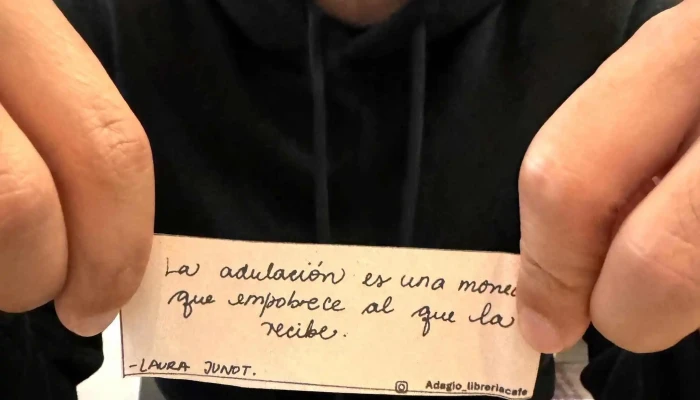 La adulación es una moned
que empobrece al que la
recibe.
-LAURA JUNOT.
Adagio_libreriacafe